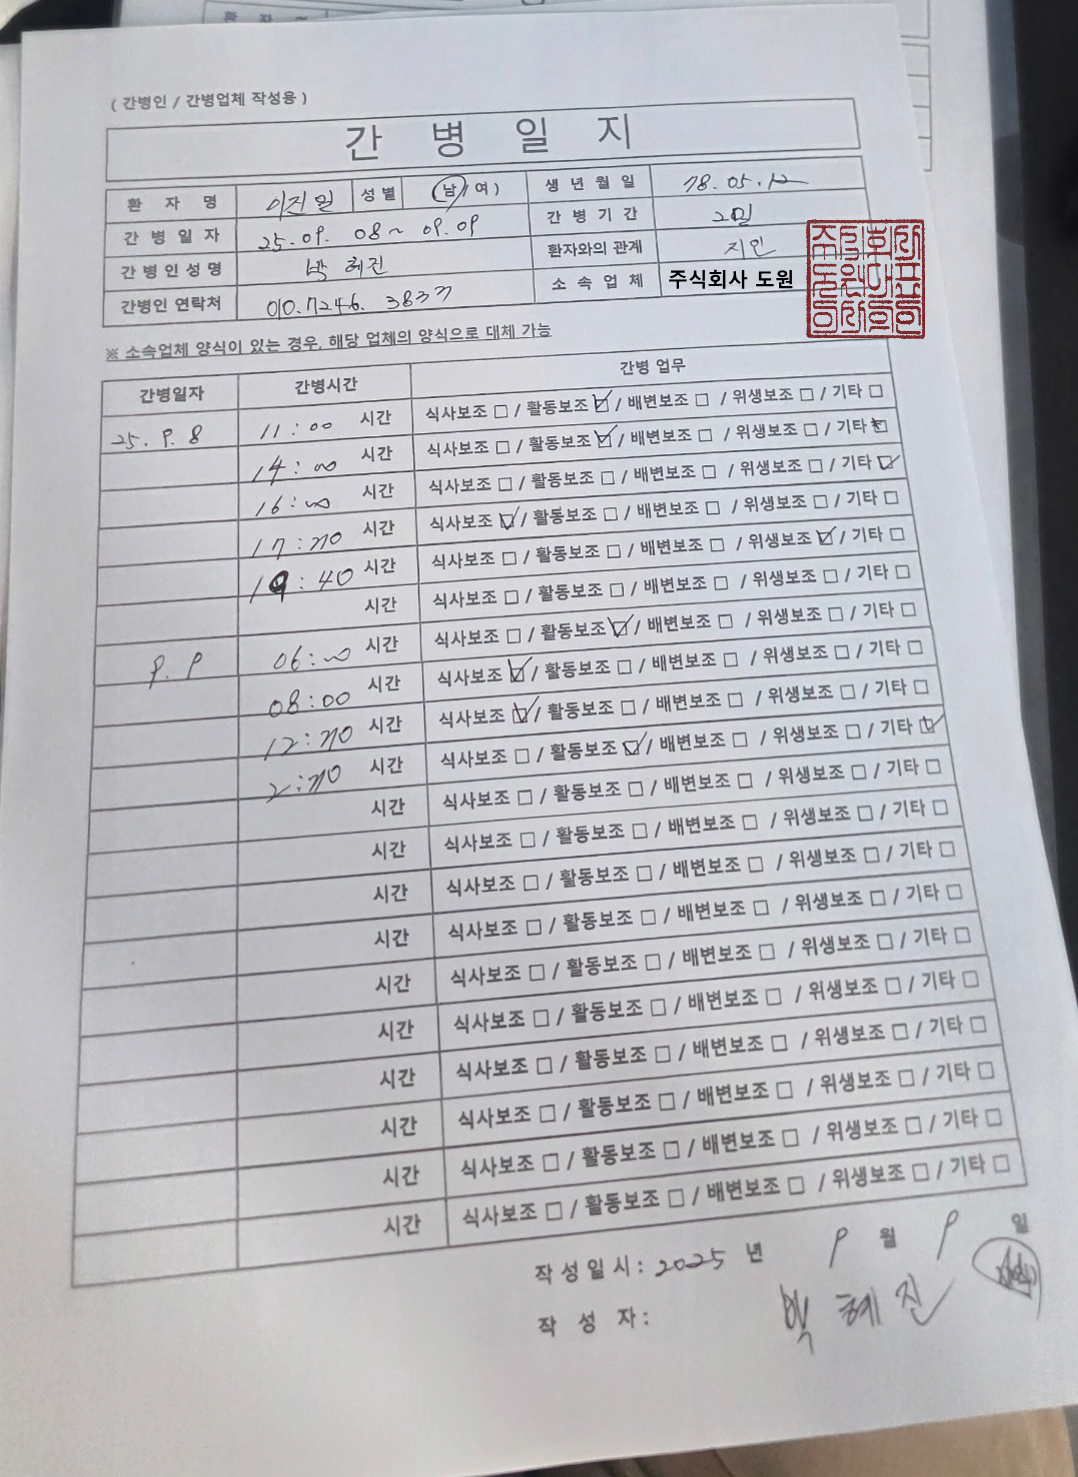 ( 간병인 / 간병업체 작성용 )
간 병 일 지
환 자 명 이진일 성별 (남/여) 생 년 월 일 78.05.12
간 병 일 자 25.09. 08~ 09.09 간 병 기 간 2일
간병인성명 박혜진 환자와의 관계 지인
간병인 연락처 010.7246.3837 소 속 업 체 주식회사 도원
※ 소속업체 양식이 있는 경우, 해당 업체의 양식으로 대체 가능
간병일자 간병시간 간병 업무
25.9.8 11:00 시간 식사보조 □ / 활동보조 ☑ / 배변보조 □ / 위생보조 □ / 기타 □
14:00 시간 식사보조 □ / 활동보조 ☑ / 배변보조 □ / 위생보조 □ / 기타 ☑
16:00 시간 식사보조 □ / 활동보조 □ / 배변보조 □ / 위생보조 □ / 기타 ☑
17:30 시간 식사보조 ☑ / 활동보조 □ / 배변보조 □ / 위생보조 □ / 기타 □
19:40 시간 식사보조 □ / 활동보조 □ / 배변보조 □ / 위생보조 ☑ / 기타 □
시간 식사보조 □ / 활동보조 □ / 배변보조 □ / 위생보조 □ / 기타 □
9.9 06:00 시간 식사보조 □ / 활동보조 ☑ / 배변보조 □ / 위생보조 □ / 기타 □
08:00 시간 식사보조 ☑ / 활동보조 □ / 배변보조 □ / 위생보조 □ / 기타 □
12:30 시간 식사보조 ☑ / 활동보조 □ / 배변보조 □ / 위생보조 □ / 기타 □
2:30 시간 식사보조 □ / 활동보조 ☑ / 배변보조 □ / 위생보조 □ / 기타 ☑
시간 식사보조 □ / 활동보조 □ / 배변보조 □ / 위생보조 □ / 기타 □
시간 식사보조 □ / 활동보조 □ / 배변보조 □ / 위생보조 □ / 기타 □
시간 식사보조 □ / 활동보조 □ / 배변보조 □ / 위생보조 □ / 기타 □
시간 식사보조 □ / 활동보조 □ / 배변보조 □ / 위생보조 □ / 기타 □
시간 식사보조 □ / 활동보조 □ / 배변보조 □ / 위생보조 □ / 기타 □
시간 식사보조 □ / 활동보조 □ / 배변보조 □ / 위생보조 □ / 기타 □
시간 식사보조 □ / 활동보조 □ / 배변보조 □ / 위생보조 □ / 기타 □
시간 식사보조 □ / 활동보조 □ / 배변보조 □ / 위생보조 □ / 기타 □
시간 식사보조 □ / 활동보조 □ / 배변보조 □ / 위생보조 □ / 기타 □
시간 식사보조 □ / 활동보조 □ / 배변보조 □ / 위생보조 □ / 기타 □
작성일시: 2025 년 9 월 9 일
작 성 자: 박혜진